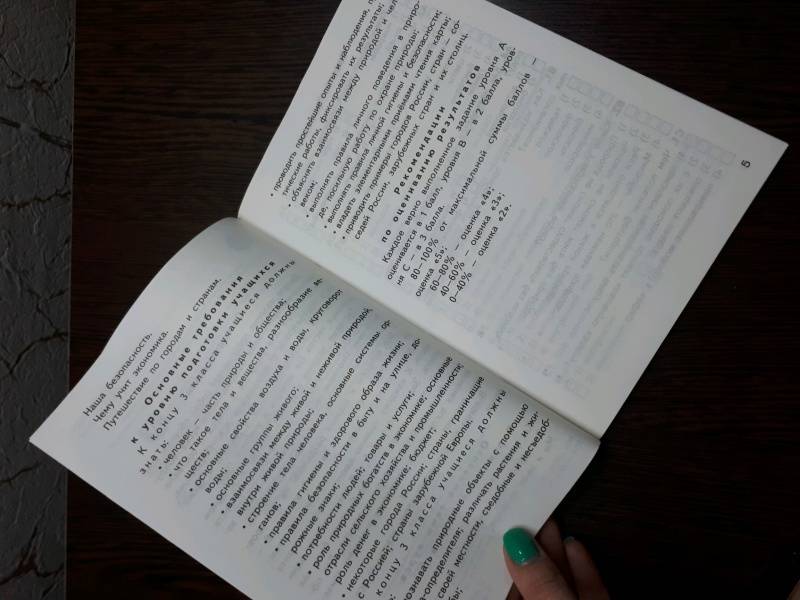 Наша безопасность.
Чему учит экономика.
Путешествие по городам и странам.
Основные требования
к уровню подготовки учащихся
К концу 3 класса учащиеся должны
знать:
• человек — часть природы и общества;
• что такое тела и вещества, разнообразие ве-
ществ;
• основные свойства воздуха и воды, круговорот
воды;
• основные группы живого;
• взаимосвязи между живой и неживой природой,
внутри живой природы;
• строение тела человека, основные системы ор-
ганов;
• правила гигиены и здорового образа жизни;
• правила безопасности в быту и на улице, до-
рожные знаки;
• потребности людей; товары и услуги;
• роль природных богатств в экономике; основные
отрасли сельского хозяйства и промышленности;
роль денег в экономике; бюджет;
• некоторые города России; страны, граничащие
с Россией; страны зарубежной Европы.
концу 3 класса учащиеся должны
познавать природные объекты с помощью
-определителя; различать растения и жи-
своей местности, съедобные и несъедоб-
• проводить простейшие опыты и наблюдения,
тические работы, фиксировать их результаты;
• объяснять взаимосвязь между природой и чел
веком;
• выполнять правила личного поведения в приро-
де, посильную работу по охране природы;
• выполнять правила личной гигиены и безопасности;
• владеть элементарными приёмами чтения карты;
• приводить примеры городов России, стран — со-
седей России, зарубежных стран и их столиц.
Рекомендации
по оцениванию результатов
Каждое верно выполненное задание уровня А
оценивается в 1 балл, уровня В — в 2 балла, уров-
ня С — в 3 балла.
80–100% от максимальной суммы баллов –
оценка «5»;
60–80% — оценка «4»;
40–60% — оценка «3»;
0–40% — оценка «2».
5